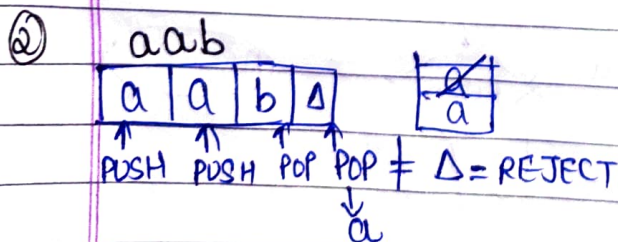 ② aab
a a b Δ
a
a
PUSH PUSH POP POP ≠ Δ = REJECT
a